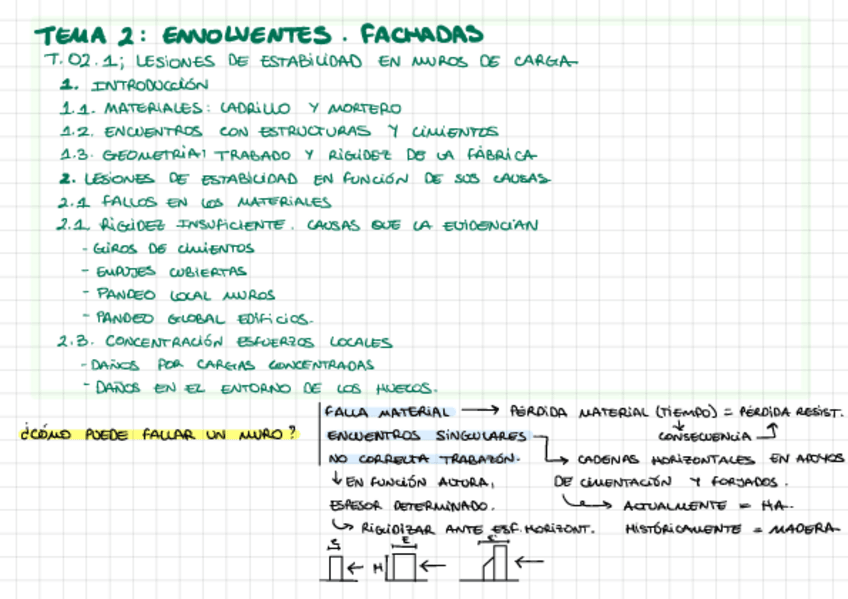 TEMA 2: ENVOLVENTES. FACHADAS
T.02.1; LESIONES DE ESTABILIDAD EN MUROS DE CARGA
1. INTRODUCCIÓN
1.1. MATERIALES: LADRILLO Y MORTERO
1.2. ENCUENTROS CON ESTRUCTURAS Y CIMIENTOS
1.3. GEOMETRIA; TRABADO Y RIGIDEZ DE LA FÁBRICA
2. LESIONES DE ESTABILIDAD EN FUNCIÓN DE SUS CAUSAS
2.1 FALLOS EN LOS MATERIALES
2.1. RIGIDEZ INSUFICIENTE. CAUSAS QUE LA EVIDENCIAN
- GIROS DE CIMIENTOS
- EMPUJES CUBIERTAS
- PANDEO LOCAL MUROS
- PANDEO GLOBAL EDIFICIOS.
2.3. CONCENTRACIÓN ESFUERZOS LOCALES
- DAÑOS POR CARGAS CONCENTRADAS
- DAÑOS EN EL ENTORNO DE LOS HUECOS.
¿CÓMO PUEDE FALLAR UN MURO?
FALLA MATERIAL → PÉRDIDA MATERIAL (TIEMPO) = PÉRDIDA RESIST.
CONSECUENCIA
ENCUENTROS SINGULARES
NO CORRECTA TRABAZÓN.
→ CADENAS HORIZONTALES EN APOYOS
DE CIMENTACIÓN Y FORJADOS.
→ ACTUALMENTE = HA.
HISTÓRICAMENTE = MADERA
↓ EN FUNCIÓN ALTURA,
ESPESOR DETERMINADO.
↳ RIGIDIZAR ANTE ESF. HORIZONT.
E
H